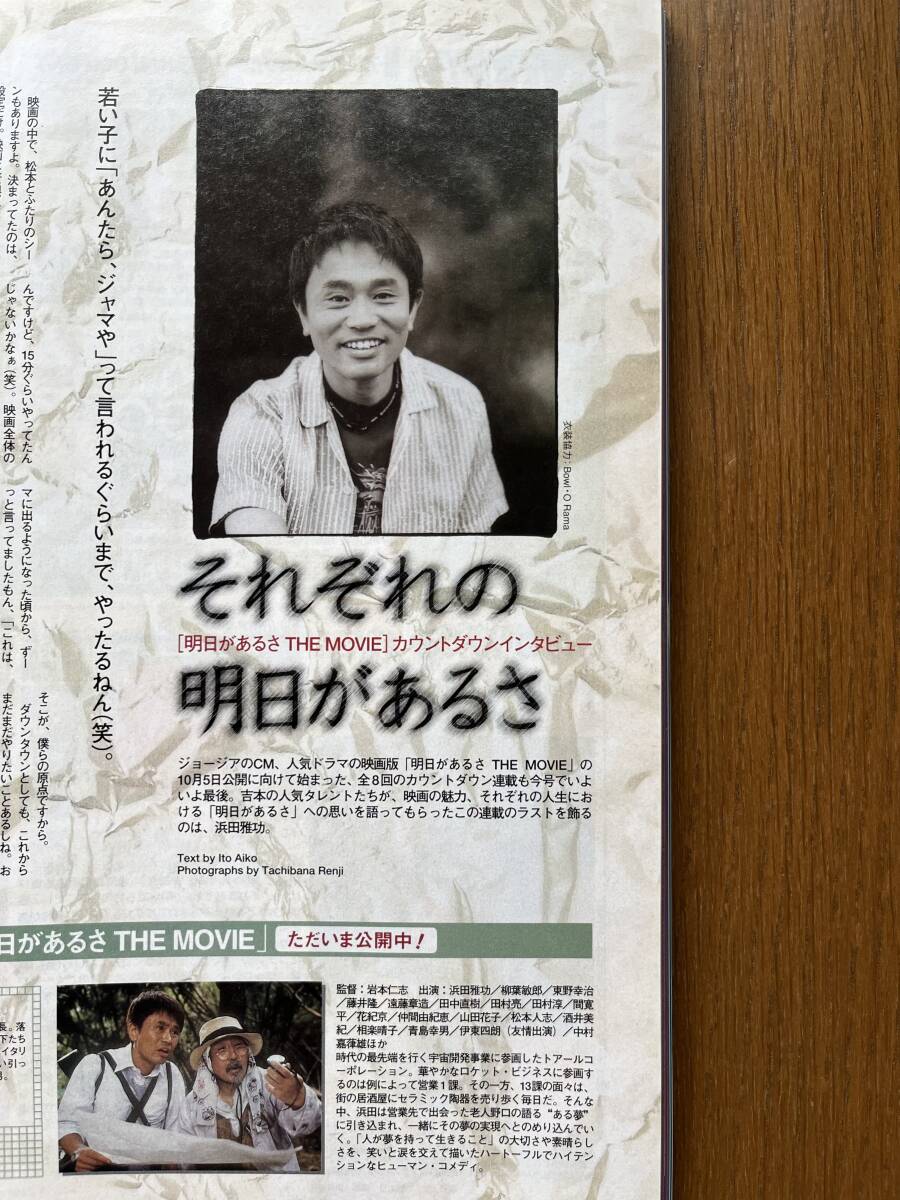 若い子に「あんたら、ジャマや」って言われるぐらいまで、やったるねん(笑)。
映画の中で、松本とふたりのシー
ンもありますよ。決まってたのは、
んですけど、15分ぐらいやってたん
じゃないかなぁ(笑)。映画全体の
マに出るようになった頃から、ずー
っと言ってましたもん、「これは、
そこが、僕らの原点ですから。
ダウンタウンとしても、これから
まだまだやりたいことあるしね。お
衣装協力:Bowl・O Rama
それぞれの
[明日があるさ THE MOVIE] カウントダウンインタビュー
明日があるさ
ジョージアのCM、人気ドラマの映画版「明日があるさ THE MOVIE」の
10月5日公開に向けて始まった、全8回のカウントダウン連載も今号でいよ
いよ最後。吉本の人気タレントたちが、映画の魅力、それぞれの人生にお
ける「明日があるさ」への思いを語ってもらったこの連載のラストを飾る
のは、浜田雅功。
Text by Ito Aiko
Photographs by Tachibana Renji
日があるさ THE MOVIE」 ただいま公開中!
長。落
下たち
イタリ
い引っ
監督:岩本仁志 出演:浜田雅功/柳葉敏郎/東野幸治
/藤井隆/遠藤章造/田中直樹/田村亮/田村淳/間寛
平/花紀京/仲間由紀恵/山田花子/松本人志/酒井美
紀/相楽晴子/青島幸男/伊東四朗(友情出演)/中村
嘉葎雄ほか
時代の最先端を行く宇宙開発事業に参画したトアールコ
ーポレーション。華やかなロケット・ビジネスに参画す
るのは例によって営業1課。その一方、13課の面々は、
街の居酒屋にセラミック陶器を売り歩く毎日だ。そんな
中、浜田は営業先で出会った老人野口の語る“ある夢”
に引き込まれ、一緒にその夢の実現へとのめり込んでい
く。「人が夢を持って生きること」の大切さや素晴らし
さを、笑いと涙を交えて描いたハートフルでハイテン
ションなヒューマン・コメディ。